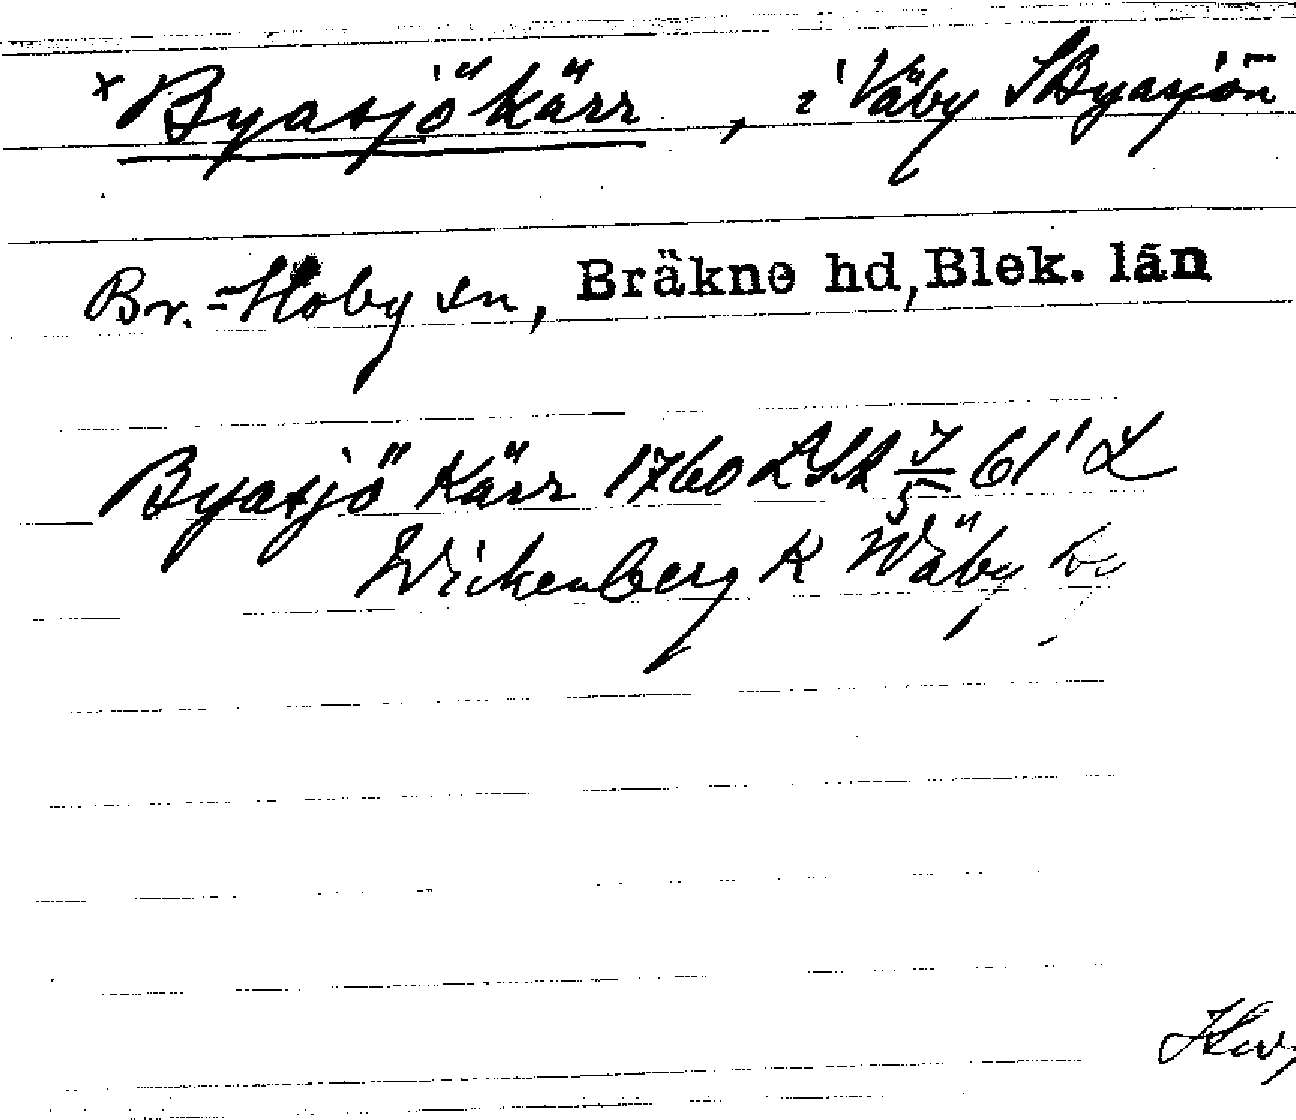 *Byasjökärr, i Väby SByasjön
Br.-Hoby sn, Bräkne hd, Blek. län
Byasjö Kärr 1760 LSA J/5 61' L
Wickenberg K Wäby by